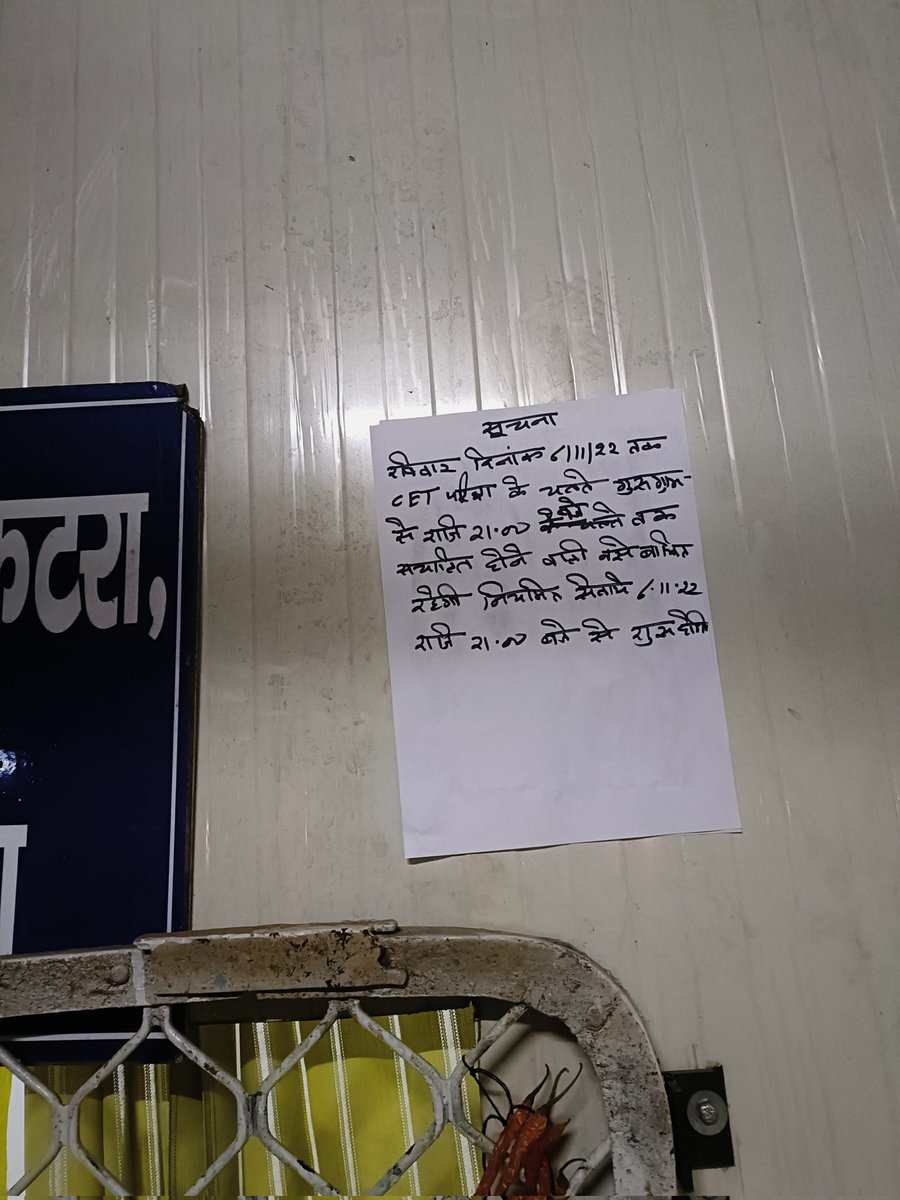 कटरा,
सूचना
रविवार दिनांक 6/11/22 तक
CET परीक्षा के चलते गुरुग्राम-
से रात्रि 21.00 बजे तक
संचालित होने वाली बसे बाधित
रहेगी नियमित सेवाये 6.11.22
रात्रि 21.00 बजे से शुरू होगी